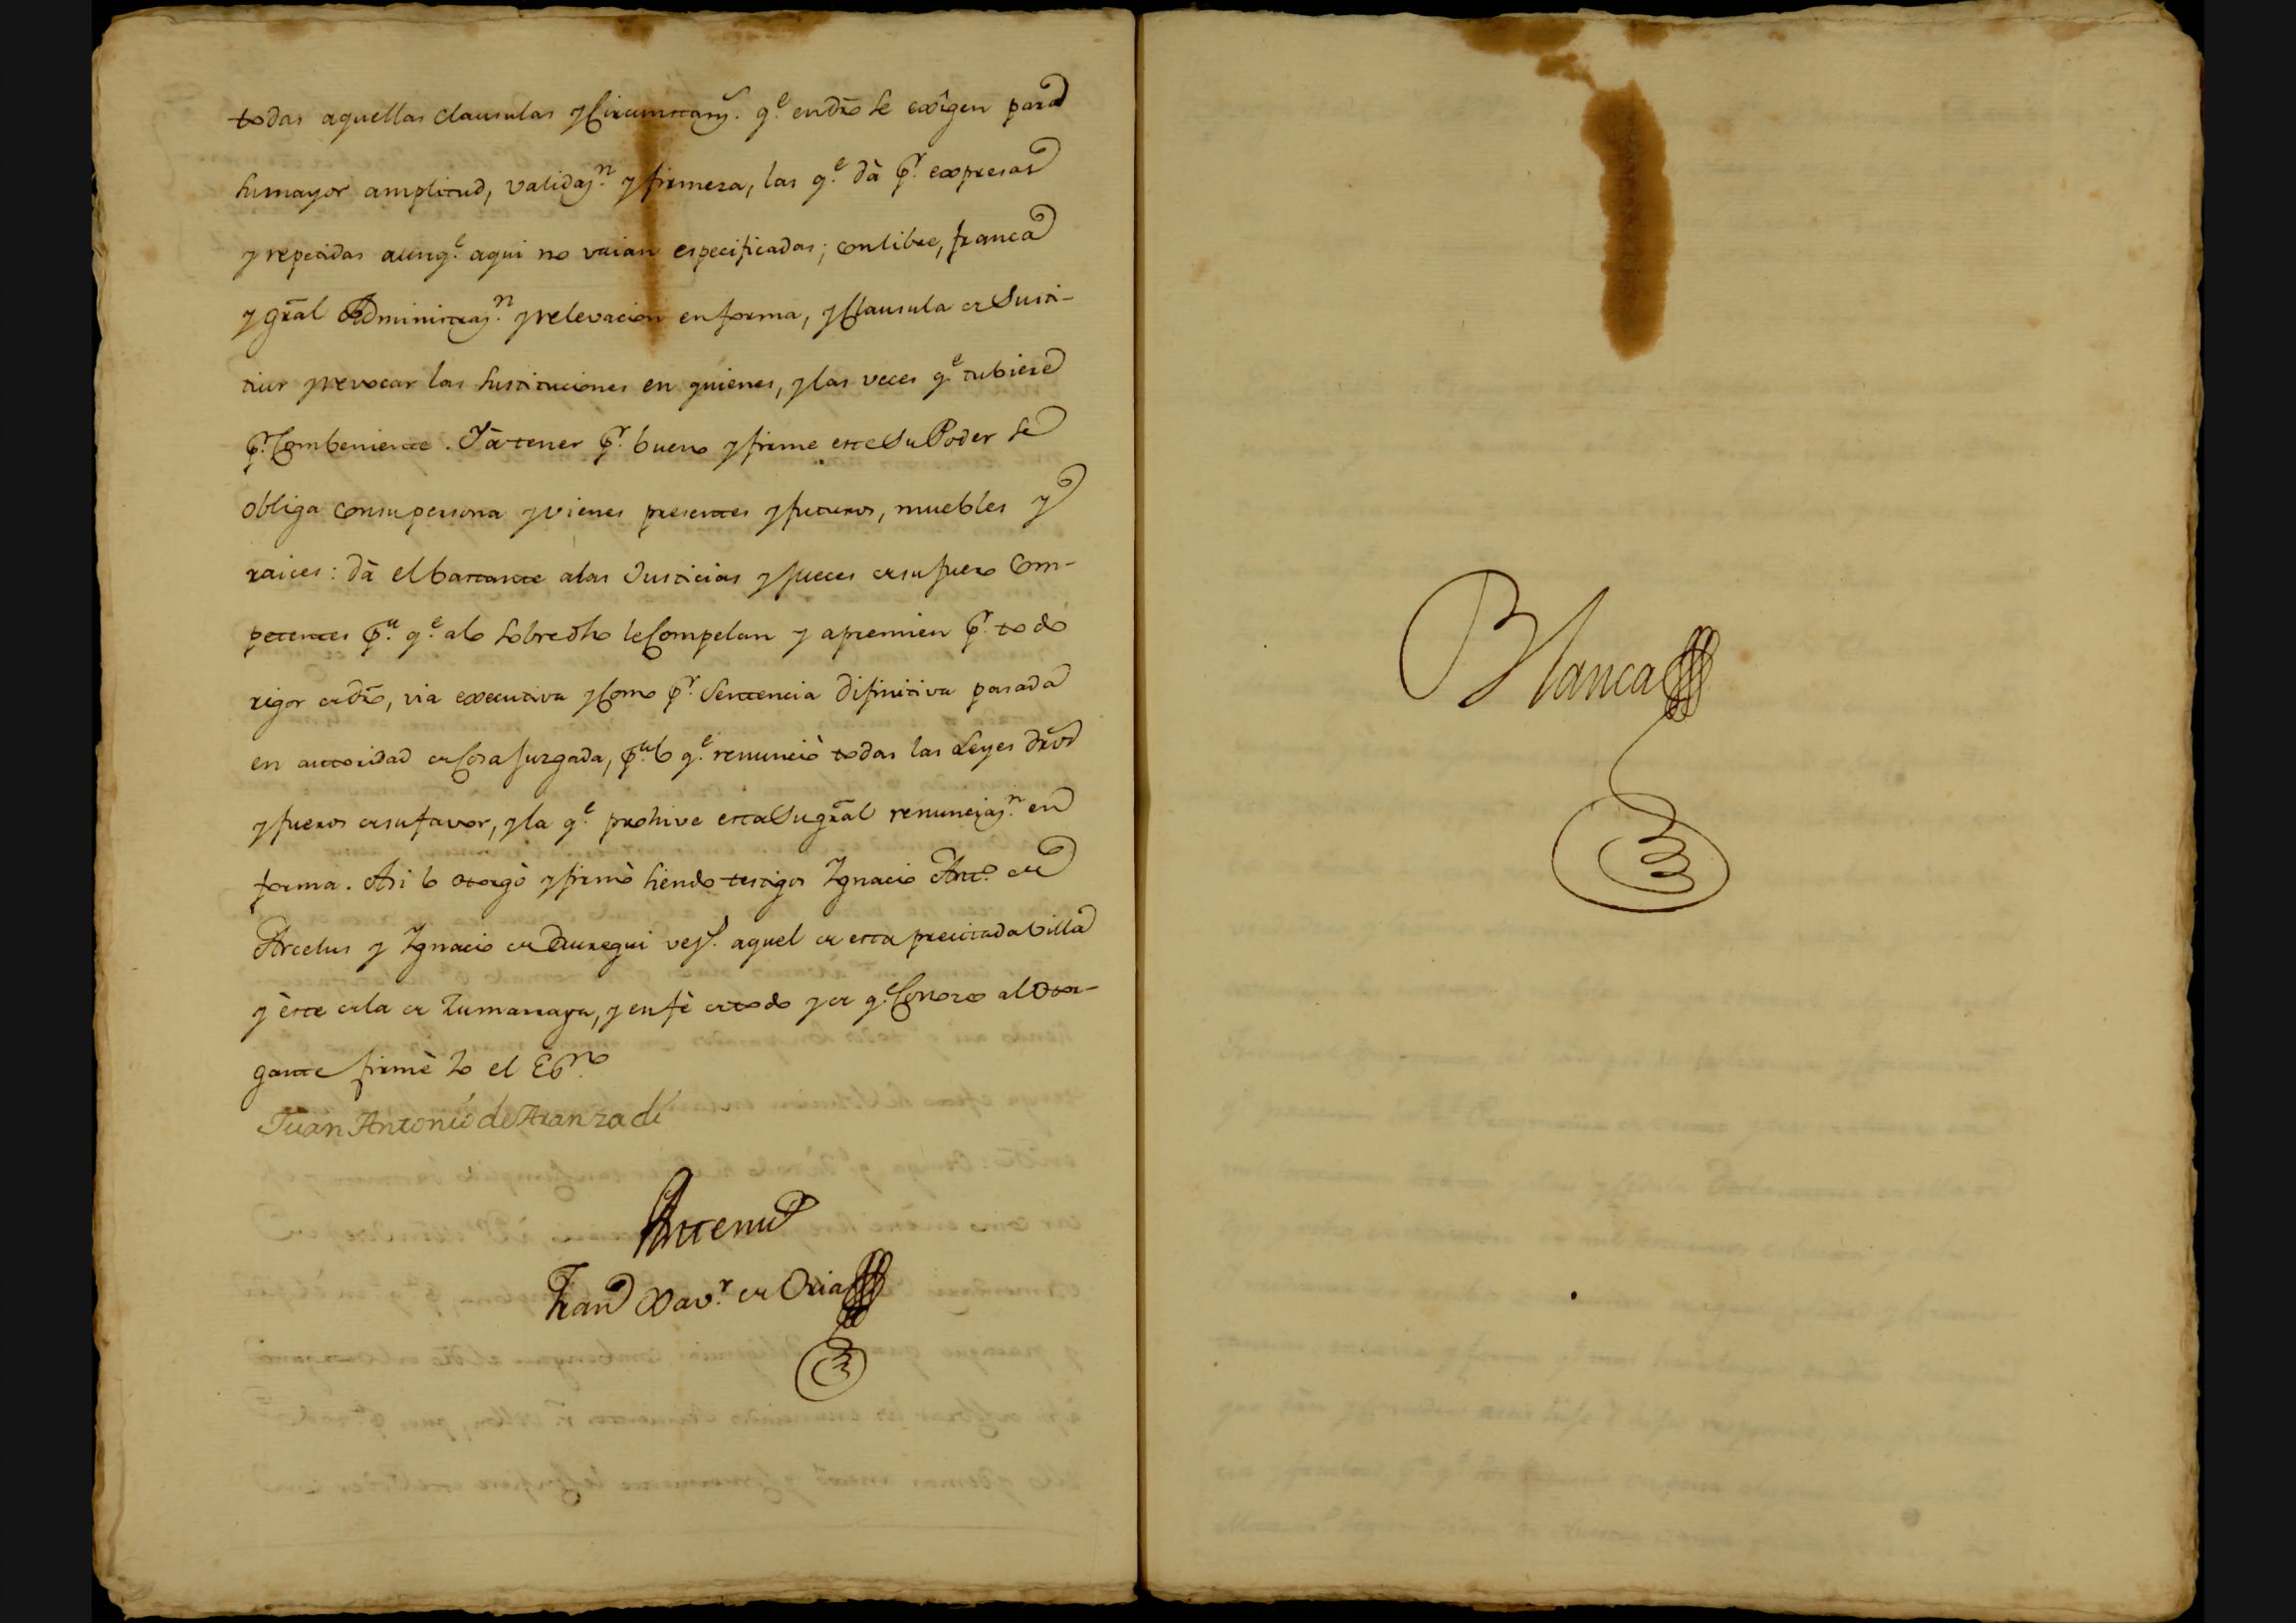 todas aquellas clausulas y Circunstanȷ.ˢ q.ᵉ en dro se exîgen para
su mayor amplitud, validaȷ.ⁿ y firmeza, las q.ᵉ dà p.ʳ expresas
y repetidas aunq.ᵉ aqui no vaian especificadas; con libre, franca
y gral Administraȷ.ⁿ y relevacion en forma, y Clausula de Susti-
tuir y revocar las sustituciones en quienes, y las veces q.ᵉ tubiere
p.ʳ Combeniente. Y à tener p.ʳ bueno y firme este Su Poder se
obliga con su persona y vienes presentes y futuros, muebles y
raices: dà el bastante a las Justicias y Jueces de su fuero Com-
petentes p.ᵃ q.ᵉ a lo sobre dho le Compelan y apremien p.ʳ todo
rigor de dro, via executiva y Como p.ʳ Sentencia difinitiva pasada
en autoridad de Cosa Juzgada, p.ᵃ lo q.ᵉ renunciò todas las Leyes dros
y fueros de su favor, y la q.ᵉ prohive esta Su gral renunciaȷ.ⁿ en
forma. Asi lo otorgò y firmò siendo testigos Ygnacio Ant.º de
Arcelus y Ygnacio de Eauregui veȷ.ˢ aquel de esta precitada Villa
y èste de la de Zumarraga, y en fè de todo y de q.ᵉ Conozco al Otor-
gante firmè Yo el Esͨ.ⁿᵒ
Juan Antonio de Aranzadi
Antemi
Fran.ᶜᵒ Xav.ʳ de Oria
Blanca